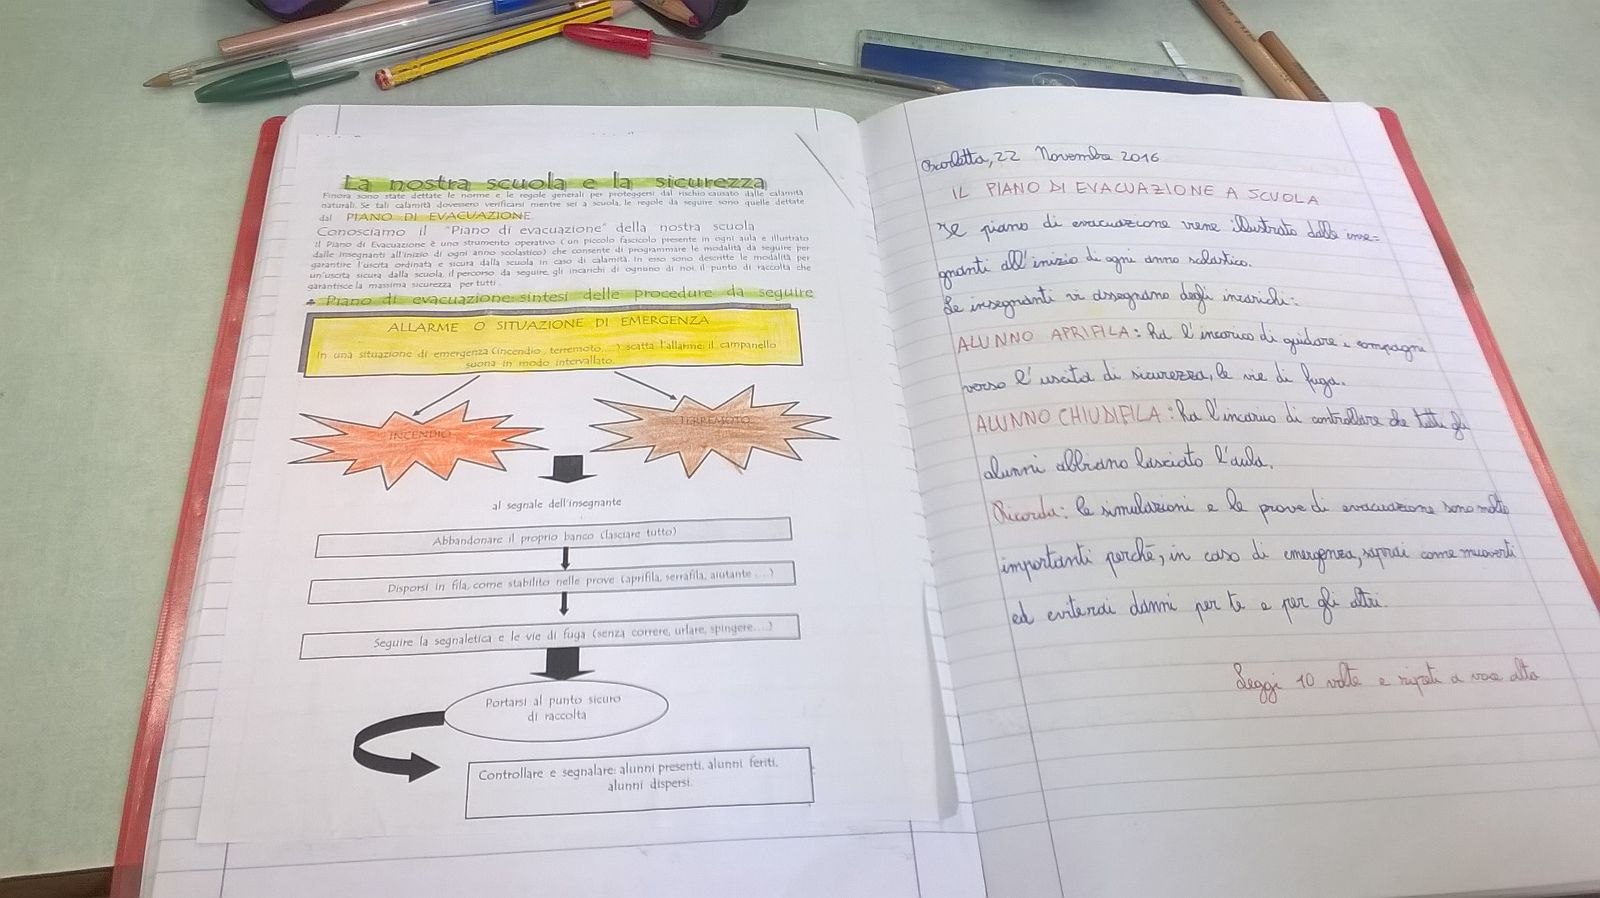 La nostra scuola e la sicurezza
Finora sono state dettate le norme e le regole generali per proteggersi dal rischio causato dalle calamità
naturali. Se tali calamità dovessero verificarsi mentre sei a scuola, le regole da seguire sono quelle dettate
dal PIANO DI EVACUAZIONE.
Conosciamo il "Piano di evacuazione" della nostra scuola
Il Piano di Evacuazione è uno strumento operativo ( un piccolo fascicolo presente in ogni aula e illustrato
dalle insegnanti all'inizio di ogni anno scolastico) che consente di programmare le modalità da seguire per
garantire l'uscita ordinata e sicura dalla scuola in caso di calamità. In esso sono descritte le modalità per
un'uscita sicura dalla scuola, il percorso da seguire, gli incarichi di ognuno di noi, il punto di raccolta che
garantisce la massima sicurezza per tutti .
Piano di evacuazione: sintesi delle procedure da seguire
ALLARME O SITUAZIONE DI EMERGENZA
In una situazione di emergenza (incendio , terremoto,....) scatta l'allarme: il campanello
suona in modo intervallato.
INCENDIO
TERREMOTO
al segnale dell'insegnante
Abbandonare il proprio banco (lasciare tutto)
Disporsi in fila, come stabilito nelle prove (aprifila, serrafila, aiutante ....)
Seguire la segnaletica e le vie di fuga (senza correre, urlare, spingere....)
Portarsi al punto sicuro
di raccolta
Controllare e segnalare: alunni presenti, alunni feriti,
alunni dispersi.
22 Novembre 2016
IL PIANO DI EVACUAZIONE A SCUOLA
Il piano di evacuazione viene illustrato dalle inse=
gnanti all'inizio di ogni anno scolastico.
Le insegnanti vi assegnano degli incarichi:
ALUNNO APRIFILA: ha l'incarico di guidare i compagni
verso l'uscita di sicurezza, le vie di fuga.
ALUNNO CHIUDIFILA: ha l'incarico di controllare che tutti gli
alunni abbiano lasciato l'aula.
Ricorda: le simulazioni e le prove di evacuazione sono molto
importanti perchè, in caso di emergenza, saprai come muoverti
ed eviterai danni per te e per gli altri.
Leggi 10 volte e ripeti a voce alta